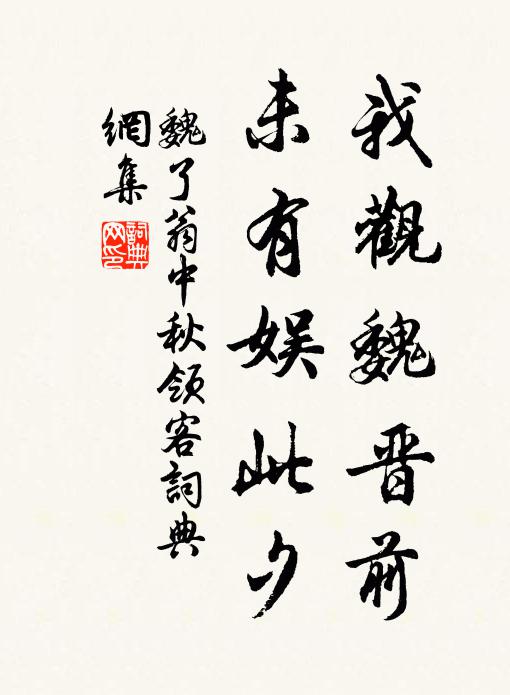 我觀魏晋前
未有娱此夕
魏了翁中秋領客詞典
網集
詞典
网印